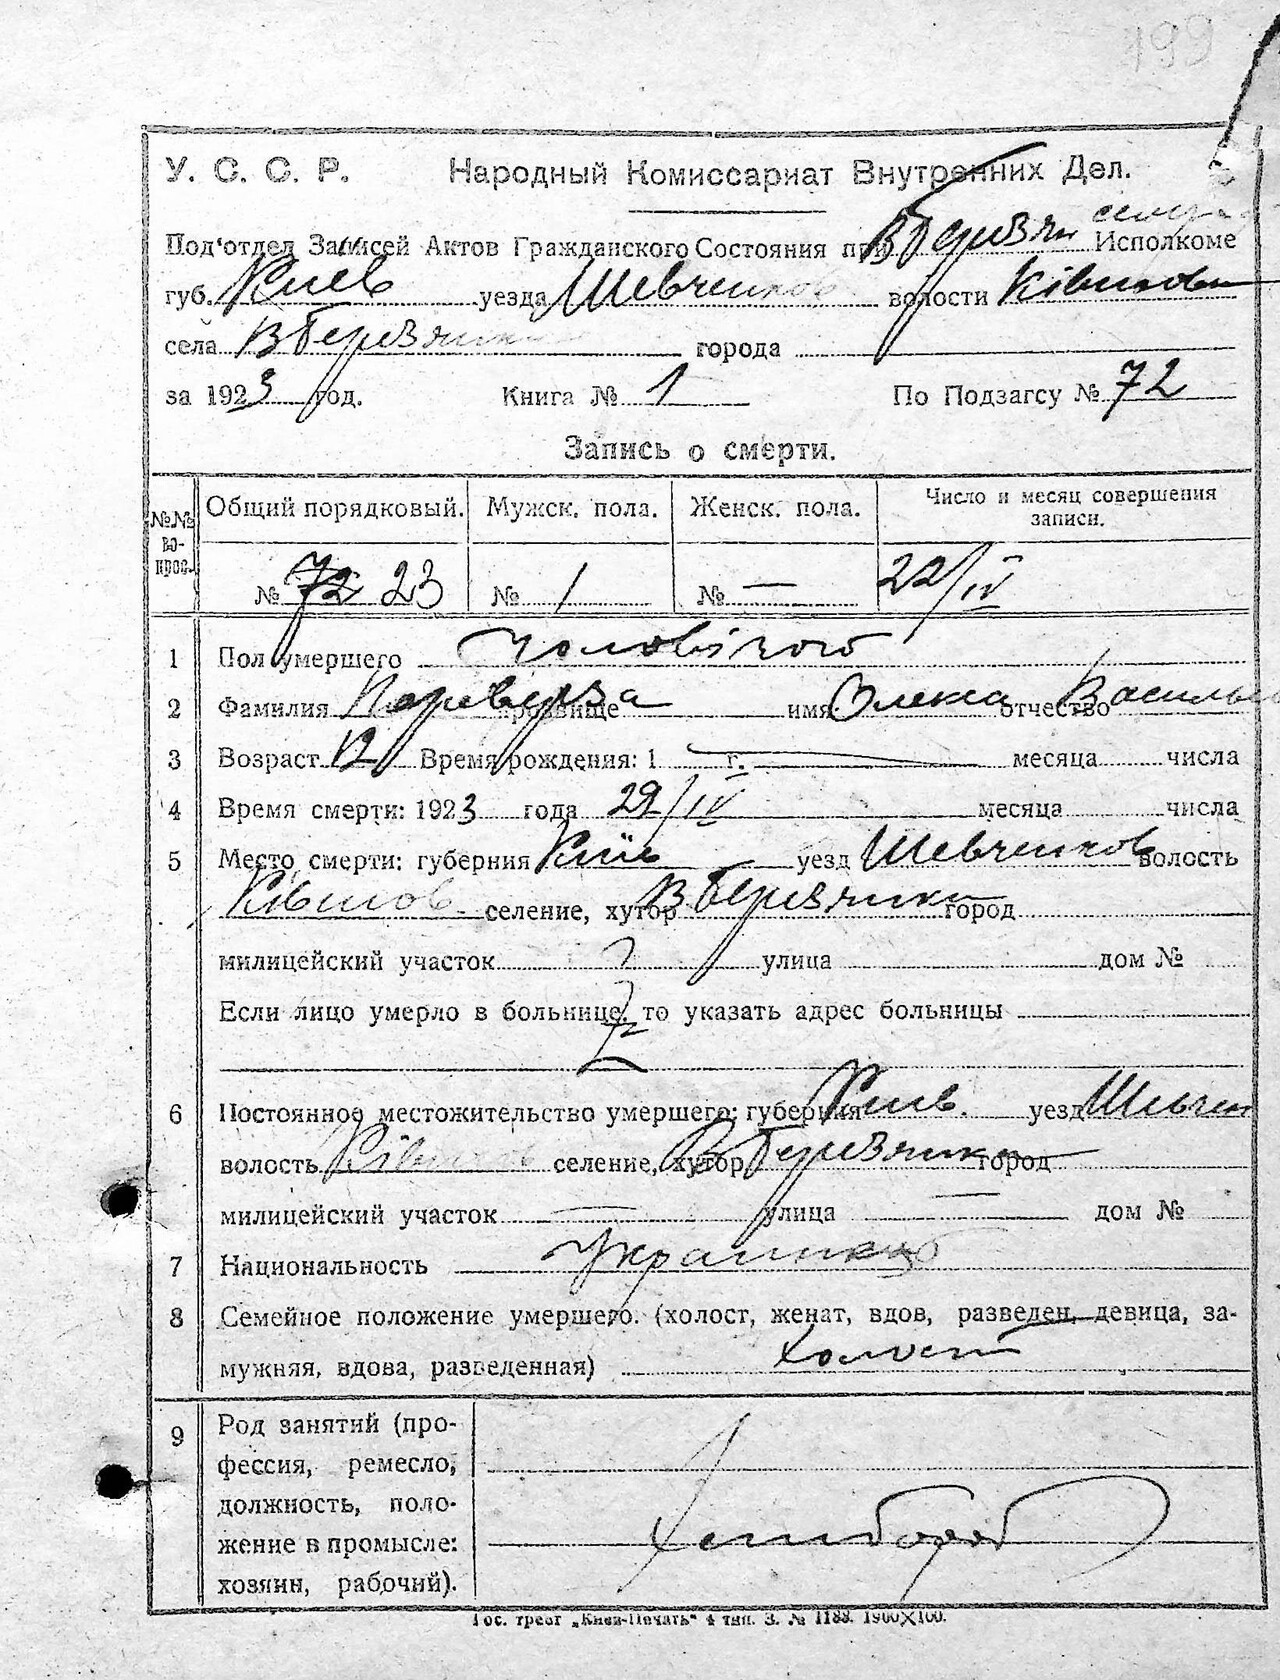 199
У. С. С. Р. Народный Комиссариат Внутренних Дел.
Под'отдел Записей Актов Гражданского Состояния при В Березян Исполкоме
губ. Київ уезда Шевченков волости Ківшов
села В Березянки города
за 1923 год. Книга № 1 По Подзагсу № 72
Запись о смерти.
№№ во-прос. Общий порядковый. Мужск. пола. Женск. пола. Число и месяц совершения записи.
№ 72 23 № 1 № — 22/IV
1 Пол умершего чоловічого
2 Фамилия Переверза прозвище имя Олекса отчество Василь
3 Возраст 12 Время рождения: 1 г. месяца числа
4 Время смерти: 1923 года 22/IV месяца числа
5 Место смерти: губерния Київ уезд Шевченков волость
Ківшов. селение, хутор В Березянки город
милицейский участок улица дом №
Если лицо умерло в больнице, то указать адрес больницы
6 Постоянное местожительство умершего: губерния Київ. уезд Шевчен
волость Ківшов селение, хутор В Березянки город
милицейский участок — улица — дом №
7 Национальность
8 Семейное положение умершего. (холост, женат, вдов, разведен, девица, за-
мужняя, вдова, разведенная) холост
9 Род занятий (про-
фессия, ремесло,
должность, поло-
жение в промысле: Хлібороб
хозяин, рабочий).
Гос. трест „Киев-Печать" 4 тип. З. № 1188. 1900×100.